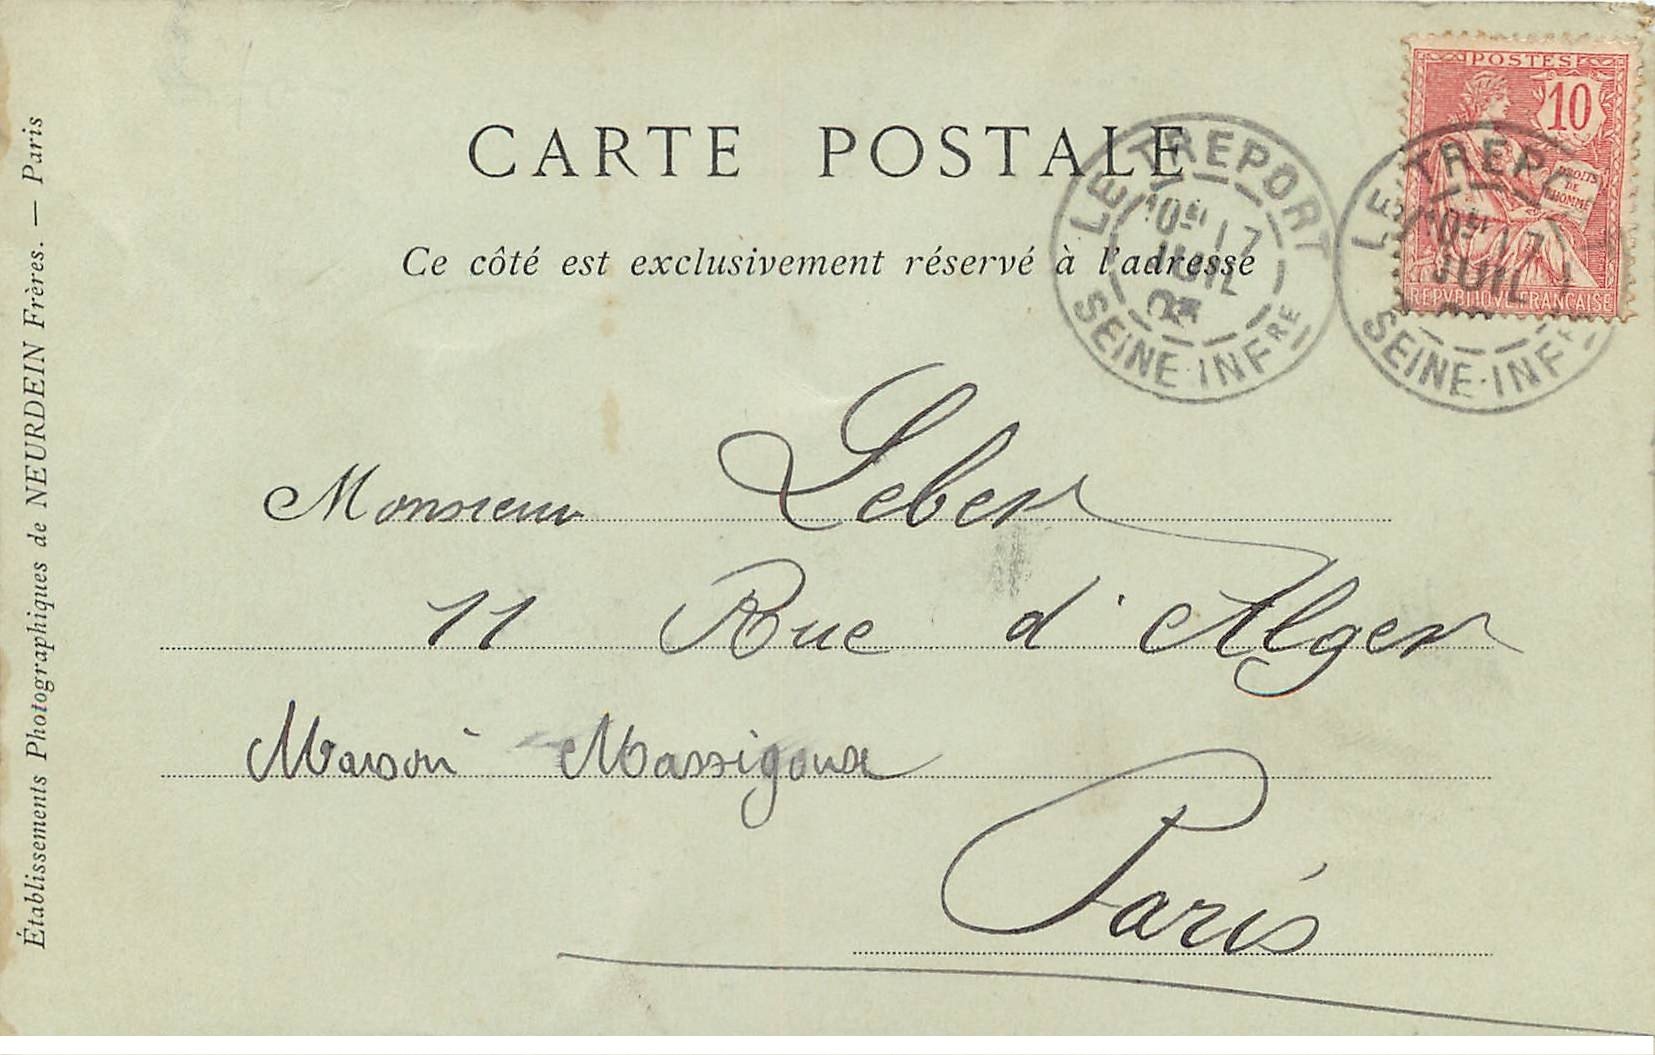 CARTE POSTALE
Ce côté est exclusivement réservé à l'adresse
POSTES
10
DROITS
DE
L'HOMME
REPVBLIQVE FRANCAISE
LE TREPORT
10 17
JUIL
SEINE-INFRE
LE TREPO
10 17
JUIL
SEINE-INF
Monsieur Leber
11 Rue d'Alger
Maison Massigoux
Paris
Établissements Photographiques de NEURDEIN Frères. — Paris